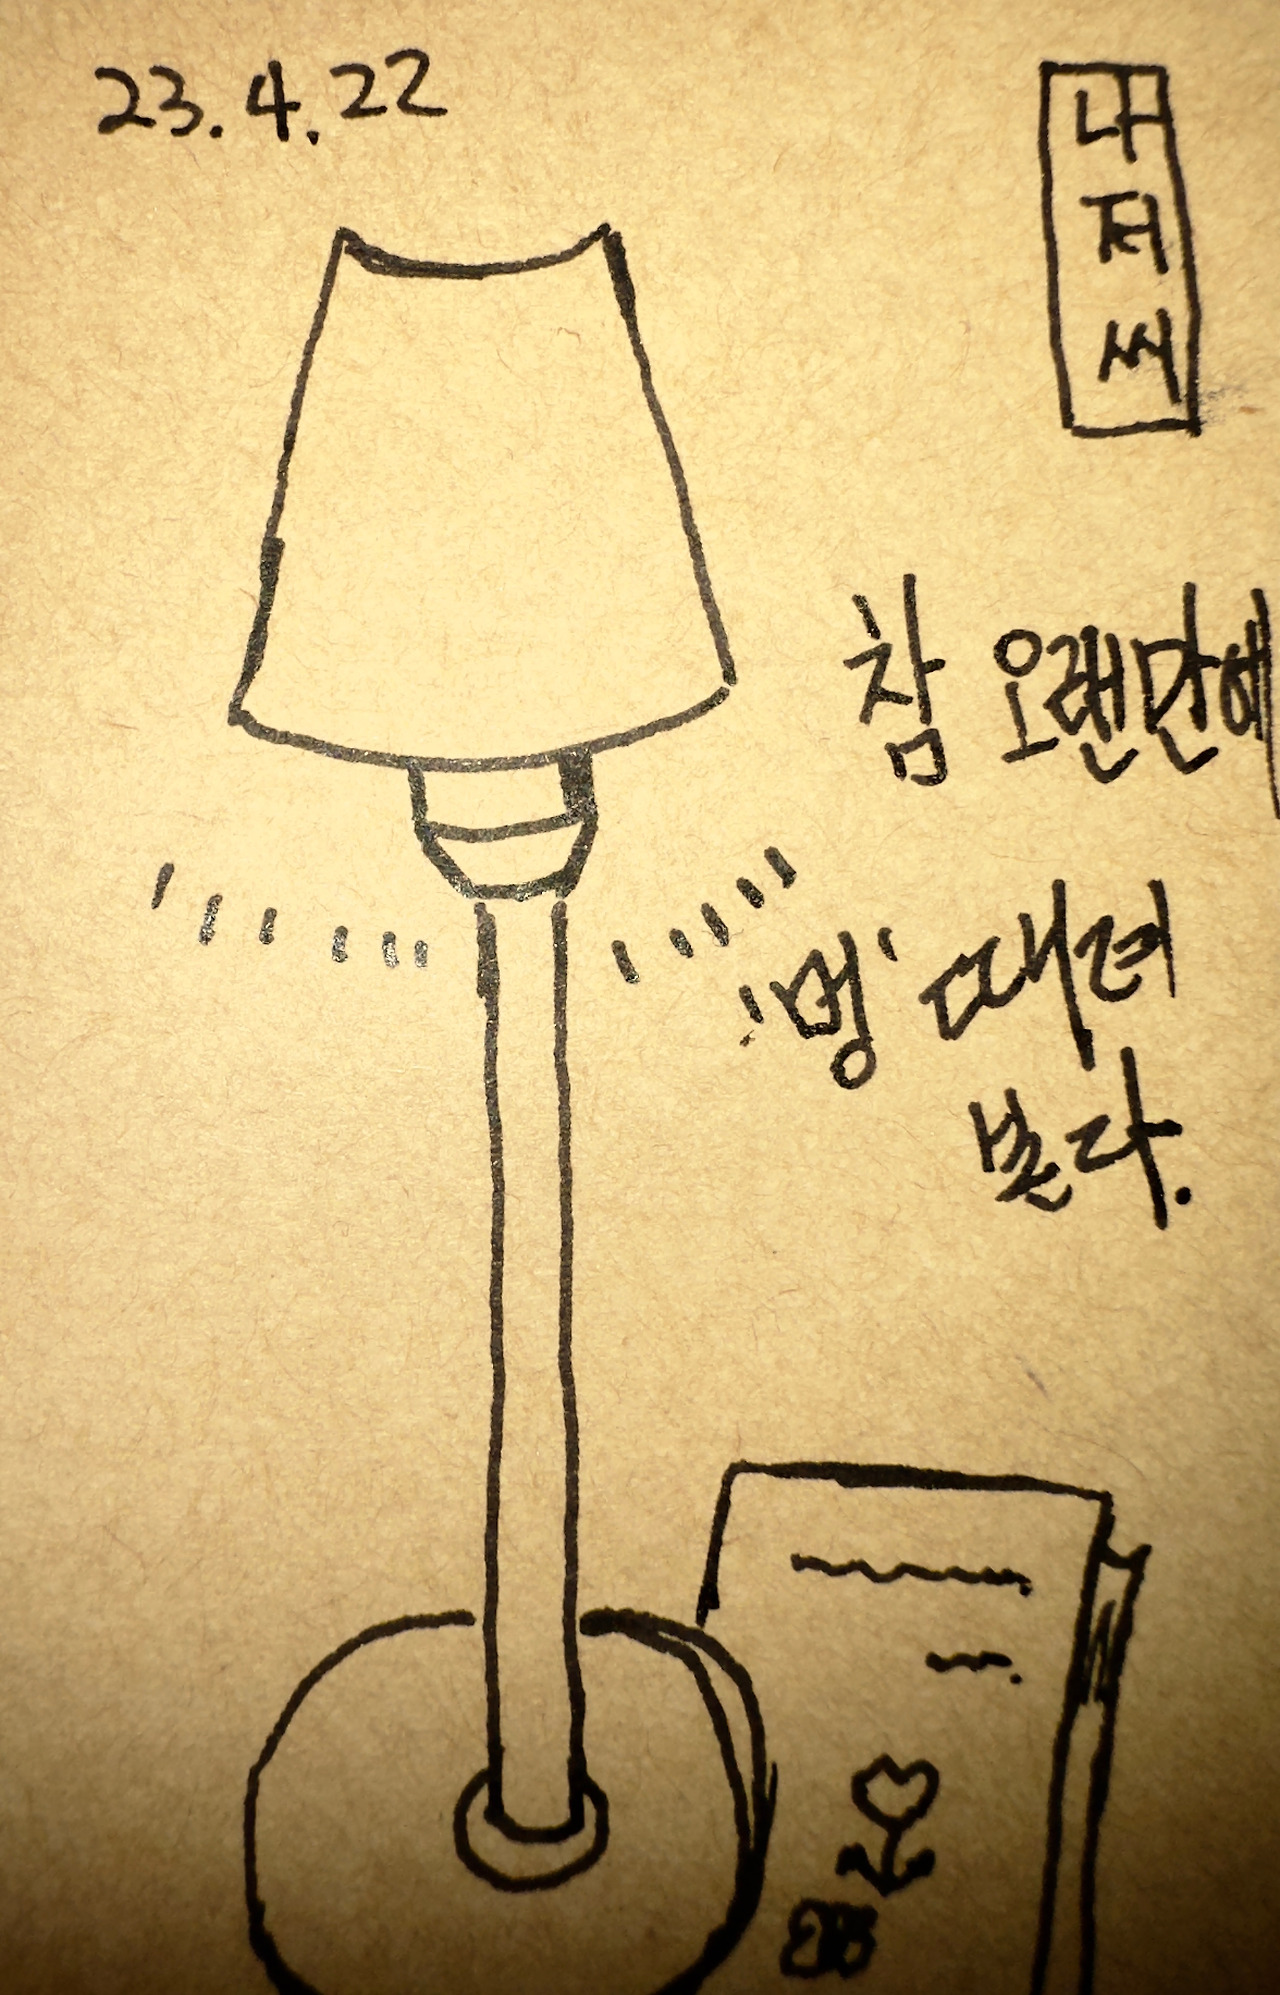 23.4.22
내
저
씨
참 오랜만에
'멍' 때려
본다.